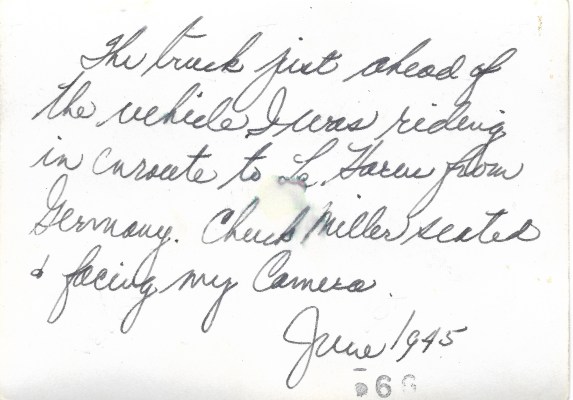 The truck just ahead of
the vehicle I was riding
in enroute to La. Harve from
Germany. Chuck Miller seated
& facing my Camera.
June 1945
566